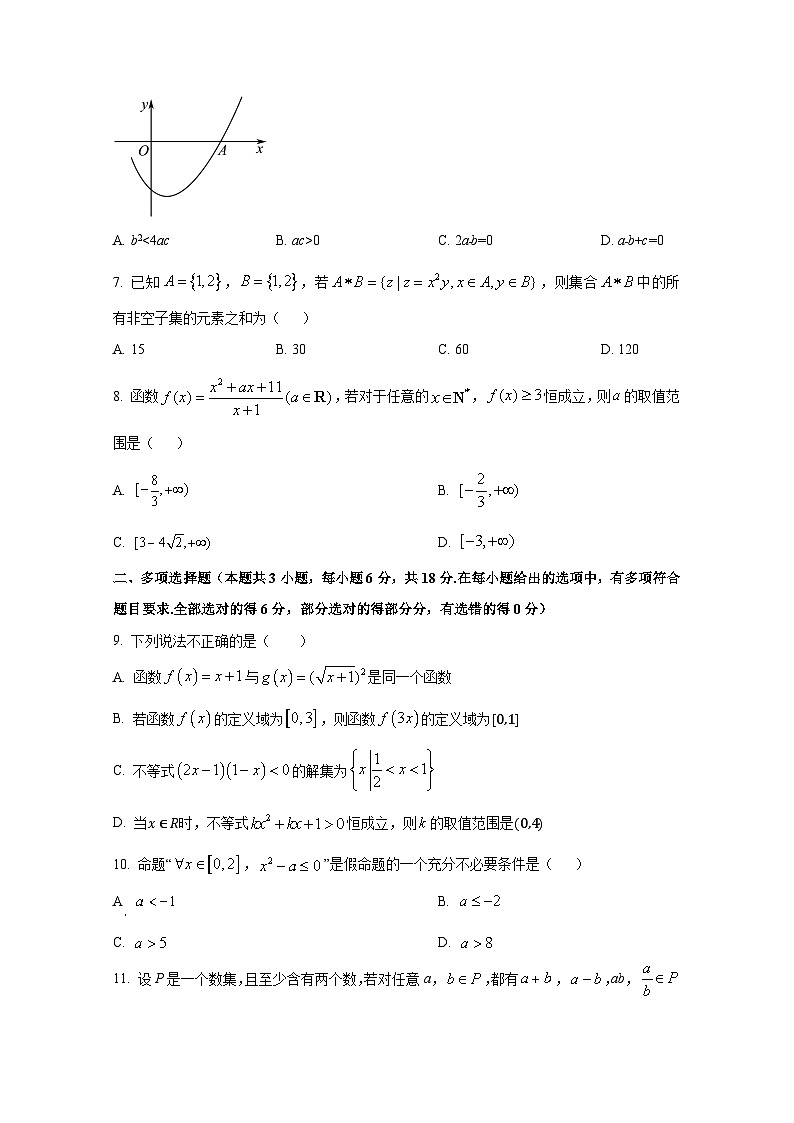 y
O A x
A. b²<4ac B. ac>0 C. 2a-b=0 D. a-b+c=0
7. 已知 A={1,2}，B={1,2}，若 A*B={z|z=x²y,x∈A,y∈B}，则集合 A*B 中的所
有非空子集的元素之和为（ ）
A. 15 B. 30 C. 60 D. 120
8. 函数 f(x)=(x²+ax+11)/(x+1)(a∈R)，若对于任意的 x∈N*，f(x)≥3 恒成立，则 a 的取值范
围是（ ）
A. [-8/3,+∞) B. [-2/3,+∞)
C. [3-4√2,+∞) D. [-3,+∞)
二、多项选择题（本题共 3 小题，每小题 6 分，共 18 分.在每小题给出的选项中，有多项符合
题目要求.全部选对的得 6 分，部分选对的得部分分，有选错的得 0 分）
9. 下列说法不正确的是（ ）
A. 函数 f(x)=x+1 与 g(x)=(√(x+1))² 是同一个函数
B. 若函数 f(x) 的定义域为 [0,3]，则函数 f(3x) 的定义域为 [0,1]
C. 不等式 (2x-1)(1-x)<0 的解集为 {x|1/2<x<1}
D. 当 x∈R 时，不等式 kx²+kx+1>0 恒成立，则 k 的取值范围是 (0,4)
10. 命题“∀x∈[0,2]，x²-a≤0”是假命题的一个充分不必要条件是（ ）
A. a<-1 B. a≤-2
C. a>5 D. a>8
11. 设 P 是一个数集，且至少含有两个数，若对任意 a，b∈P，都有 a+b，a-b，ab，a/b∈P